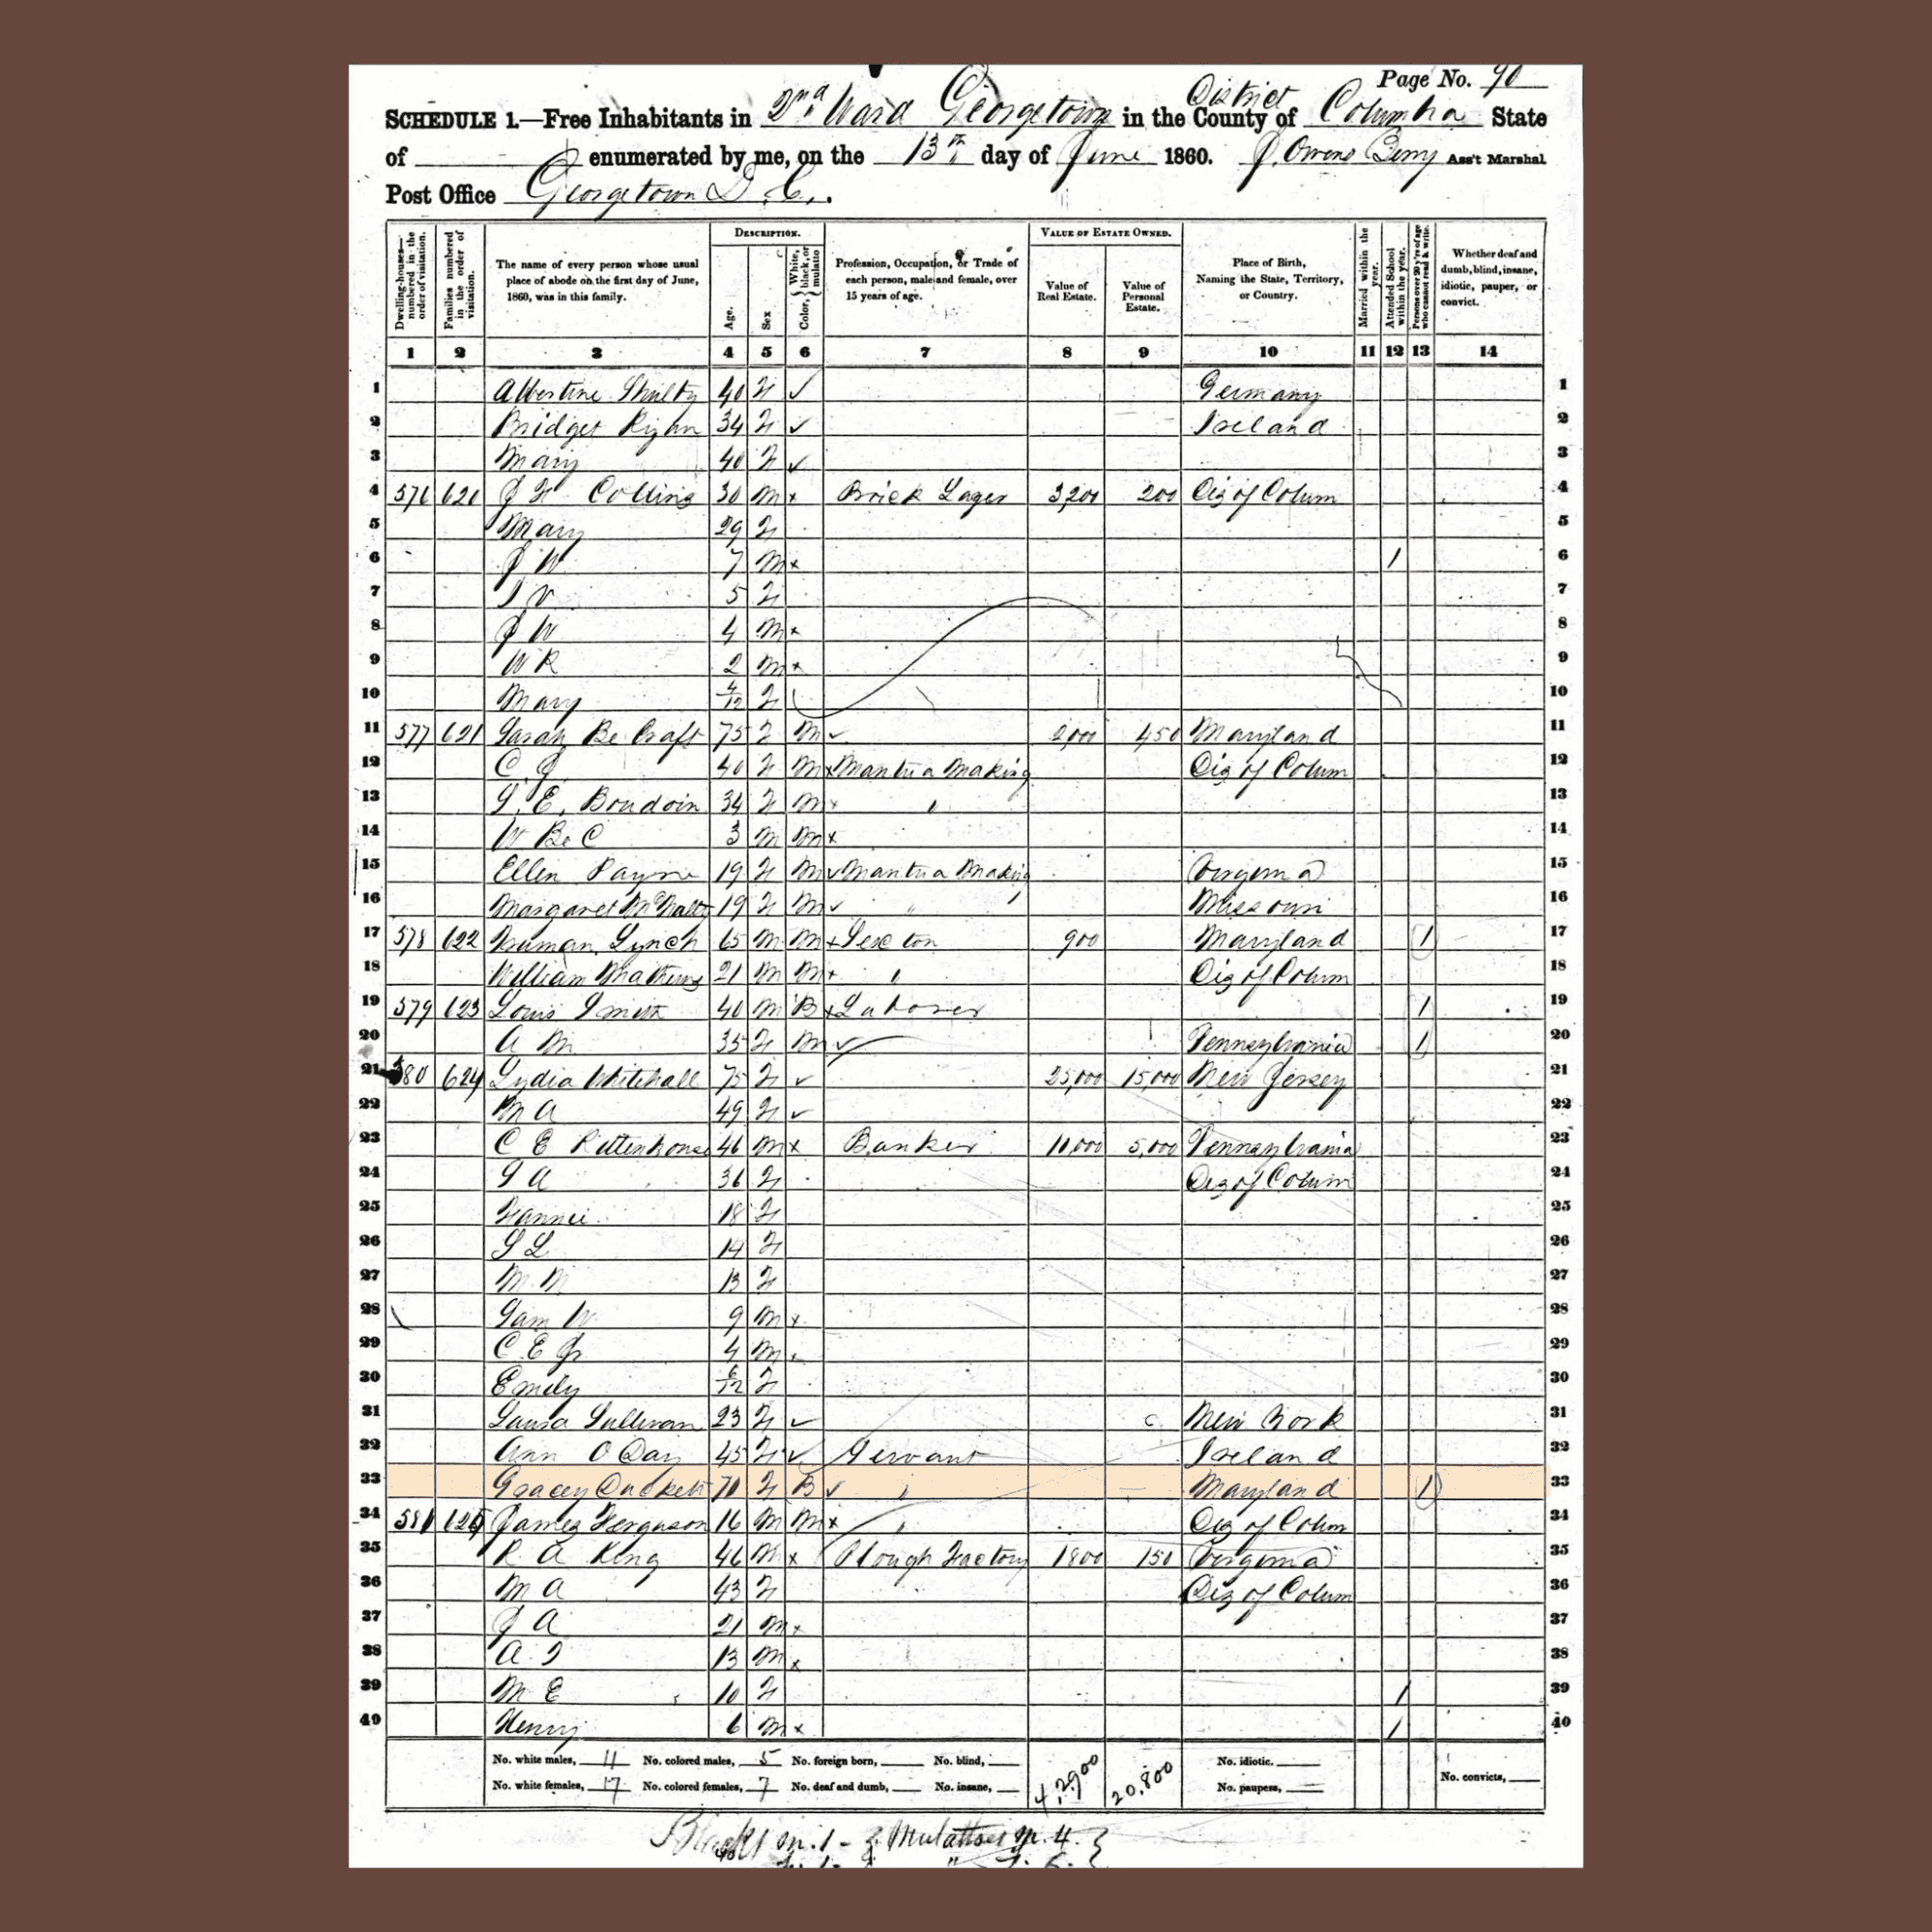 Page No. 90
SCHEDULE 1.—Free Inhabitants in 2nd Ward Georgetown in the County of District Columbia State
of enumerated by me, on the 13th day of June 1860. J. Owens Berry Ass't Marshal
Post Office Georgetown D.C.
Dwelling-houses—numbered in the order of visitation.
Families numbered in the order of visitation.
The name of every person whose usual place of abode on the first day of June, 1860, was in this family.
DESCRIPTION.
Age.
Sex
Color, White, black, or mulatto
Profession, Occupation, or Trade of each person, male and female, over 15 years of age.
VALUE OF ESTATE OWNED.
Value of Real Estate.
Value of Personal Estate.
Place of Birth, Naming the State, Territory, or Country.
Married within the year.
Attended School within the year.
Persons over 20 y'rs of age who cannot read & write.
Whether deaf and dumb, blind, insane, idiotic, pauper, or convict.
1 2 3 4 5 6 7 8 9 10 11 12 13 14
1 Albertine 40 F Germany 1
2 Bridget 34 F Ireland 2
3 Mary 40 F 3
4 576 620 J H Collins 30 M Brick Layer 3,200 200 Dis of Colum 4
5 Mary 29 F 5
6 J W 7 M 1 6
7 5 F 7
8 J W 4 M 8
9 W R 2 M 9
10 Mary 4/12 F 10
11 577 621 Sarah Be Craft 75 F M 2,000 450 Maryland 11
12 C J 40 F M Mantua Making Dis of Colum 12
13 S. E. Boudoin 34 F M " 13
14 W Be C 3 M M 14
15 Ellen Payne 19 F M Mantua Making Virginia 15
16 Margaret McNalty 19 F M " Missouri 16
17 578 622 Truman Lynch 65 M M Sexton 900 Maryland 1 17
18 William Mathews 21 M M " Dis of Colum 18
19 579 623 Louis Smith 40 M B Laborer 1 19
20 A M 35 F M Pennsylvania 1 20
21 580 624 Lydia Whitehall 75 F 25,000 15,000 New Jersey 21
22 M A 49 F 22
23 C E Rittenhouse 46 M Banker 10,000 5,000 Pennsylvania 23
24 S A 36 F Dis of Colum 24
25 Fannie 18 F 25
26 S L 14 F 26
27 M. M 13 F 27
28 Sam W 9 M 28
29 C. E Jr 4 M 29
30 Emily 6/12 F 30
31 Laura Sullivan 23 F New York 31
32 Ann O Day 45 F Servant Ireland 32
33 Gracey Duckett 70 F B " Maryland 1 33
34 581 625 James Ferguson 16 M M " Dis of Colum 34
35 R A King 46 M Plough Factory 1800 150 Virginia 35
36 M A 43 F Dis of Colum 36
37 J A 21 M 37
38 13 M 38
39 M E 10 F 1 39
40 Henry 6 M 1 40
No. white males, 11 No. colored males, 5 No. foreign born, No. blind, 42,900 20,800 No. idiotic.
No. white females, 17 No. colored females, 7 No. deaf and dumb, No. insane, No. paupers, No. convicts,
Blacks m. 1 - Mulattoes m. 4.